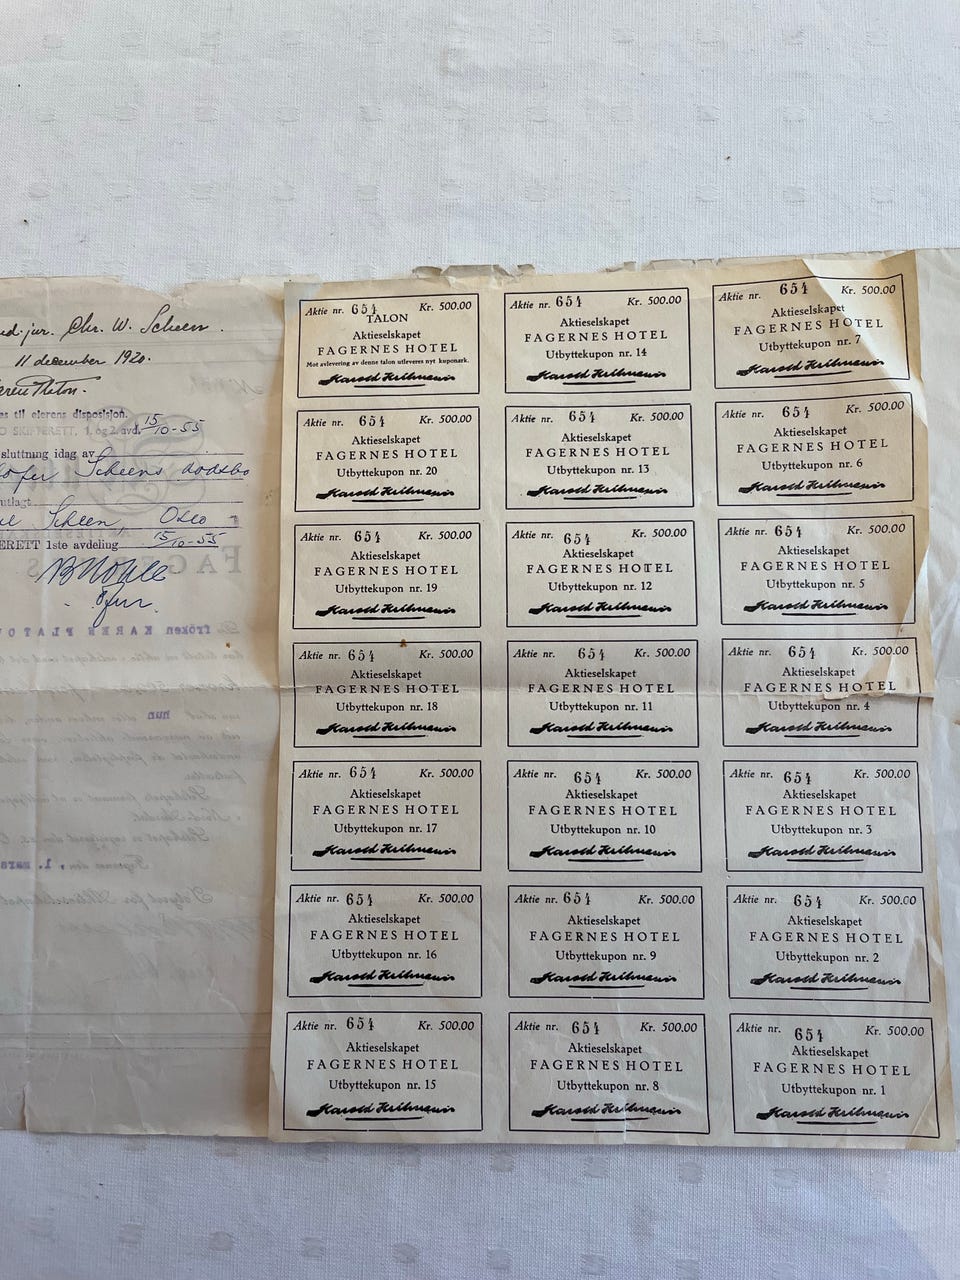 jur. Chr. W. Scheen.
11 december 1920.
es til eierens disposisjon.
O SKIFTERETT, 1. og 2. avd. 15/10-55
sluttning idag av
Scheens dødsbo
utlagt
Scheen, Oslo
ERETT 1ste avdeling 15/10-55
fröken KAREN PLATOU
hun
1. mars
Aktie nr. 654 Kr. 500.00
TALON
Aktieselskapet
FAGERNES HOTEL
Mot avlevering av denne talon utleveres nyt kuponark.
Aktie nr. 654 Kr. 500.00
Aktieselskapet
FAGERNES HOTEL
Utbyttekupon nr. 14
Aktie nr. 654 Kr. 500.00
Aktieselskapet
FAGERNES HOTEL
Utbyttekupon nr. 7
Aktie nr. 654 Kr. 500.00
Aktieselskapet
FAGERNES HOTEL
Utbyttekupon nr. 20
Aktie nr. 654 Kr. 500.00
Aktieselskapet
FAGERNES HOTEL
Utbyttekupon nr. 13
Aktie nr. 654 Kr. 500.00
Aktieselskapet
FAGERNES HOTEL
Utbyttekupon nr. 6
Aktie nr. 654 Kr. 500.00
Aktieselskapet
FAGERNES HOTEL
Utbyttekupon nr. 19
Aktie nr. 654 Kr. 500.00
Aktieselskapet
FAGERNES HOTEL
Utbyttekupon nr. 12
Aktie nr. 654 Kr. 500.00
Aktieselskapet
FAGERNES HOTEL
Utbyttekupon nr. 5
Aktie nr. 654 Kr. 500.00
Aktieselskapet
FAGERNES HOTEL
Utbyttekupon nr. 18
Aktie nr. 654 Kr. 500.00
Aktieselskapet
FAGERNES HOTEL
Utbyttekupon nr. 11
Aktie nr. 654 Kr. 500.00
Aktieselskapet
FAGERNES HOTEL
Utbyttekupon nr. 4
Aktie nr. 654 Kr. 500.00
Aktieselskapet
FAGERNES HOTEL
Utbyttekupon nr. 17
Aktie nr. 654 Kr. 500.00
Aktieselskapet
FAGERNES HOTEL
Utbyttekupon nr. 10
Aktie nr. 654 Kr. 500.00
Aktieselskapet
FAGERNES HOTEL
Utbyttekupon nr. 3
Aktie nr. 654 Kr. 500.00
Aktieselskapet
FAGERNES HOTEL
Utbyttekupon nr. 16
Aktie nr. 654 Kr. 500.00
Aktieselskapet
FAGERNES HOTEL
Utbyttekupon nr. 9
Aktie nr. 654 Kr. 500.00
Aktieselskapet
FAGERNES HOTEL
Utbyttekupon nr. 2
Aktie nr. 654 Kr. 500.00
Aktieselskapet
FAGERNES HOTEL
Utbyttekupon nr. 15
Aktie nr. 654 Kr. 500.00
Aktieselskapet
FAGERNES HOTEL
Utbyttekupon nr. 8
Aktie nr. 654 Kr. 500.00
Aktieselskapet
FAGERNES HOTEL
Utbyttekupon nr. 1